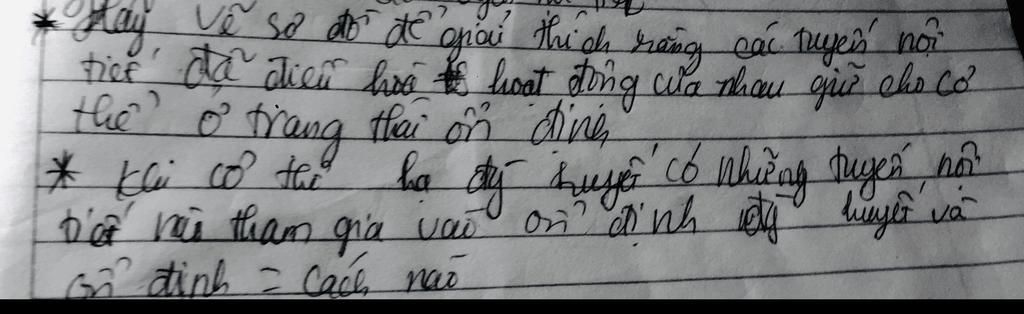 * Hãy vẽ sơ đồ để giải thích rằng các tuyến nội
tiết đã điều hoà hoạt động của nhau giữ cho cơ
thể ở trạng thái ổn định
* Khi cơ thể hạ đg huyết có những tuyến nội
tiết nào tham gia vào ổn định đg huyết và
ổn định = cách nào